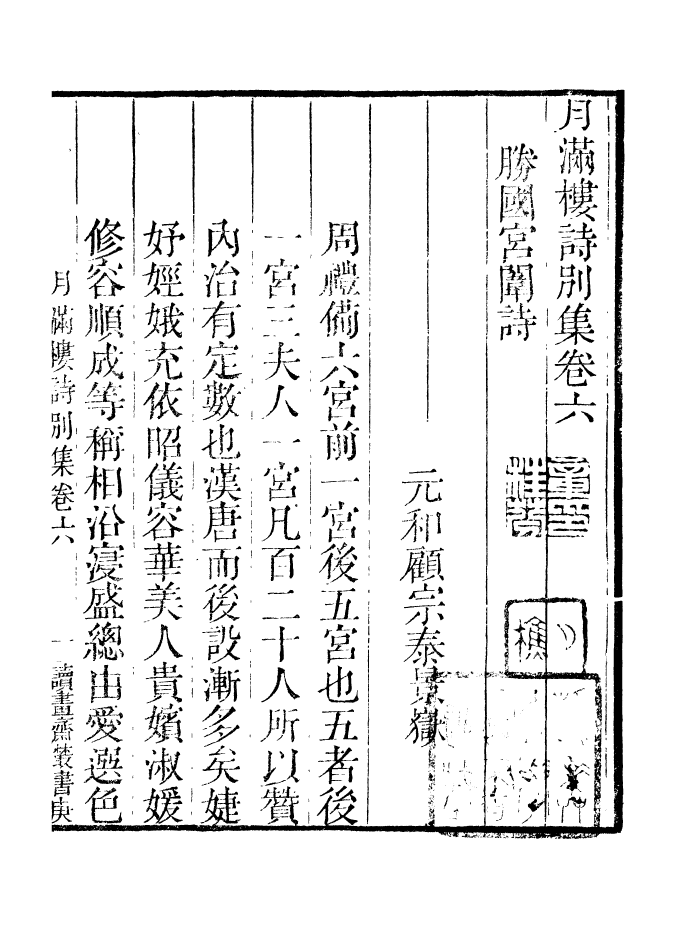 月滿樓詩別集卷六
勝國宮闈詩
元和顧宗泰景嶽
周禮備六宮前一宮後五宮也五者後
一宮三夫人一宮凡百二十人所以贊
內治有定數也漢唐而後設漸多矣婕
妤娙娥充依昭儀容華美人貴嬪淑媛
修容順成等稱相沿寖盛總由愛選色
月滿樓詩別集卷六 一 讀畫齋叢書庚